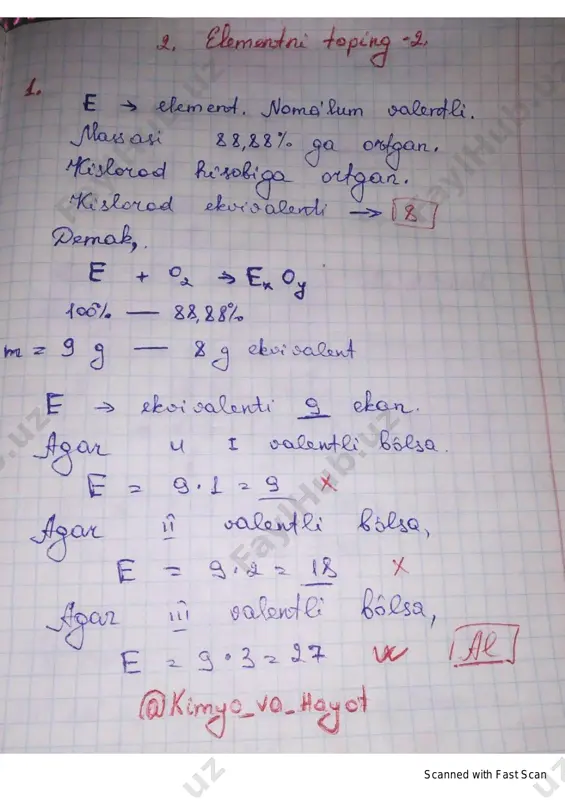 2. Elementni toping-2.
1.
E → element. Noma'lum valentli.
Massasi 88,88% ga ortgan.
Kislorod hisobiga ortgan.
Kislorod ekvivalenti → 8
Demak,
E + O₂ → EₓOᵧ
100% — 88,88%
m = 9 g — 8 g ekvivalent
E → ekvivalenti 9 ekan.
Agar u I valentli bo'lsa.
E = 9·1 = 9 ×
Agar II valentli bo'lsa,
E = 9·2 = 18 ×
Agar III valentli bo'lsa,
E = 9·3 = 27 ✓ Al
@Kimyo_va_Hayot
FaylHub.uz
Scanned with Fast Scan